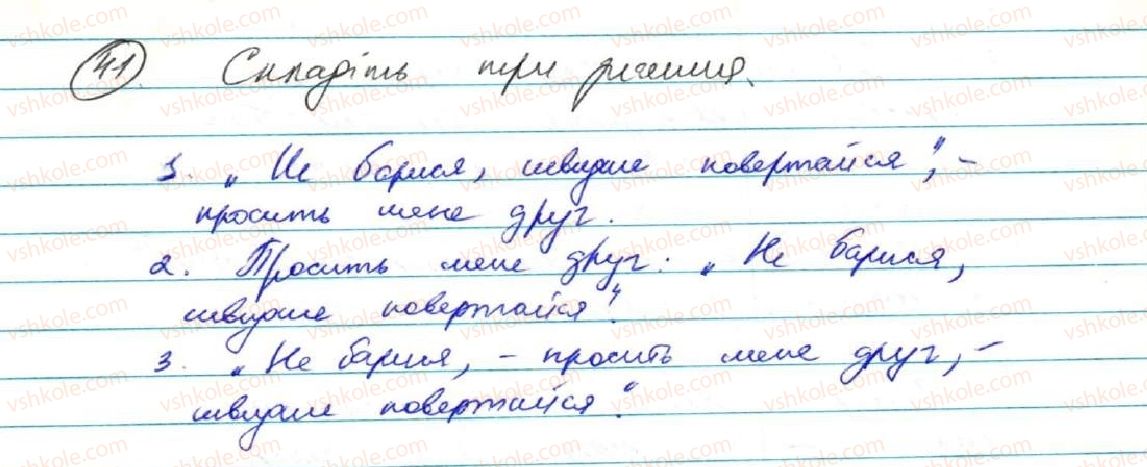 41. Складіть три речення.
1. „Не барися, швидше повертайся", –
просить мене друг.
2. Просить мене друг: „Не барися,
швидше повертайся".
3. „Не барися, – просить мене друг, –
швидше повертайся".